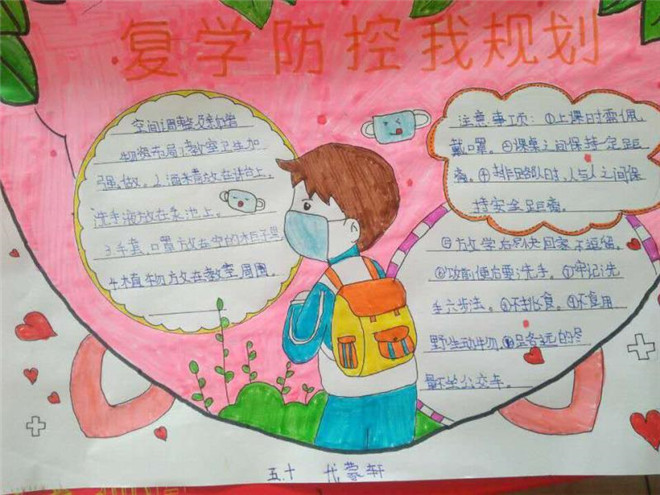 复学防控我规划
空间调整及物资
物资布局:教室卫生加
强做。2.酒精放在讲台上,
洗手液放在水池上。
3.手套、口罩放在空的柜子里
4.植物放在教室周围。
注意事项:①上课时需佩
戴口罩。②课桌之间保持一定距
离。④排路队时,人与人之间保
持安全距离。
⑤放学后别快回家不逗留。
⑥饭前便后要洗手。⑦牢记洗
手六步法。⑧不挑食。⑨不食用
野生动物。⑩路远的尽
量坐公交车。
五.十 代蒙轩